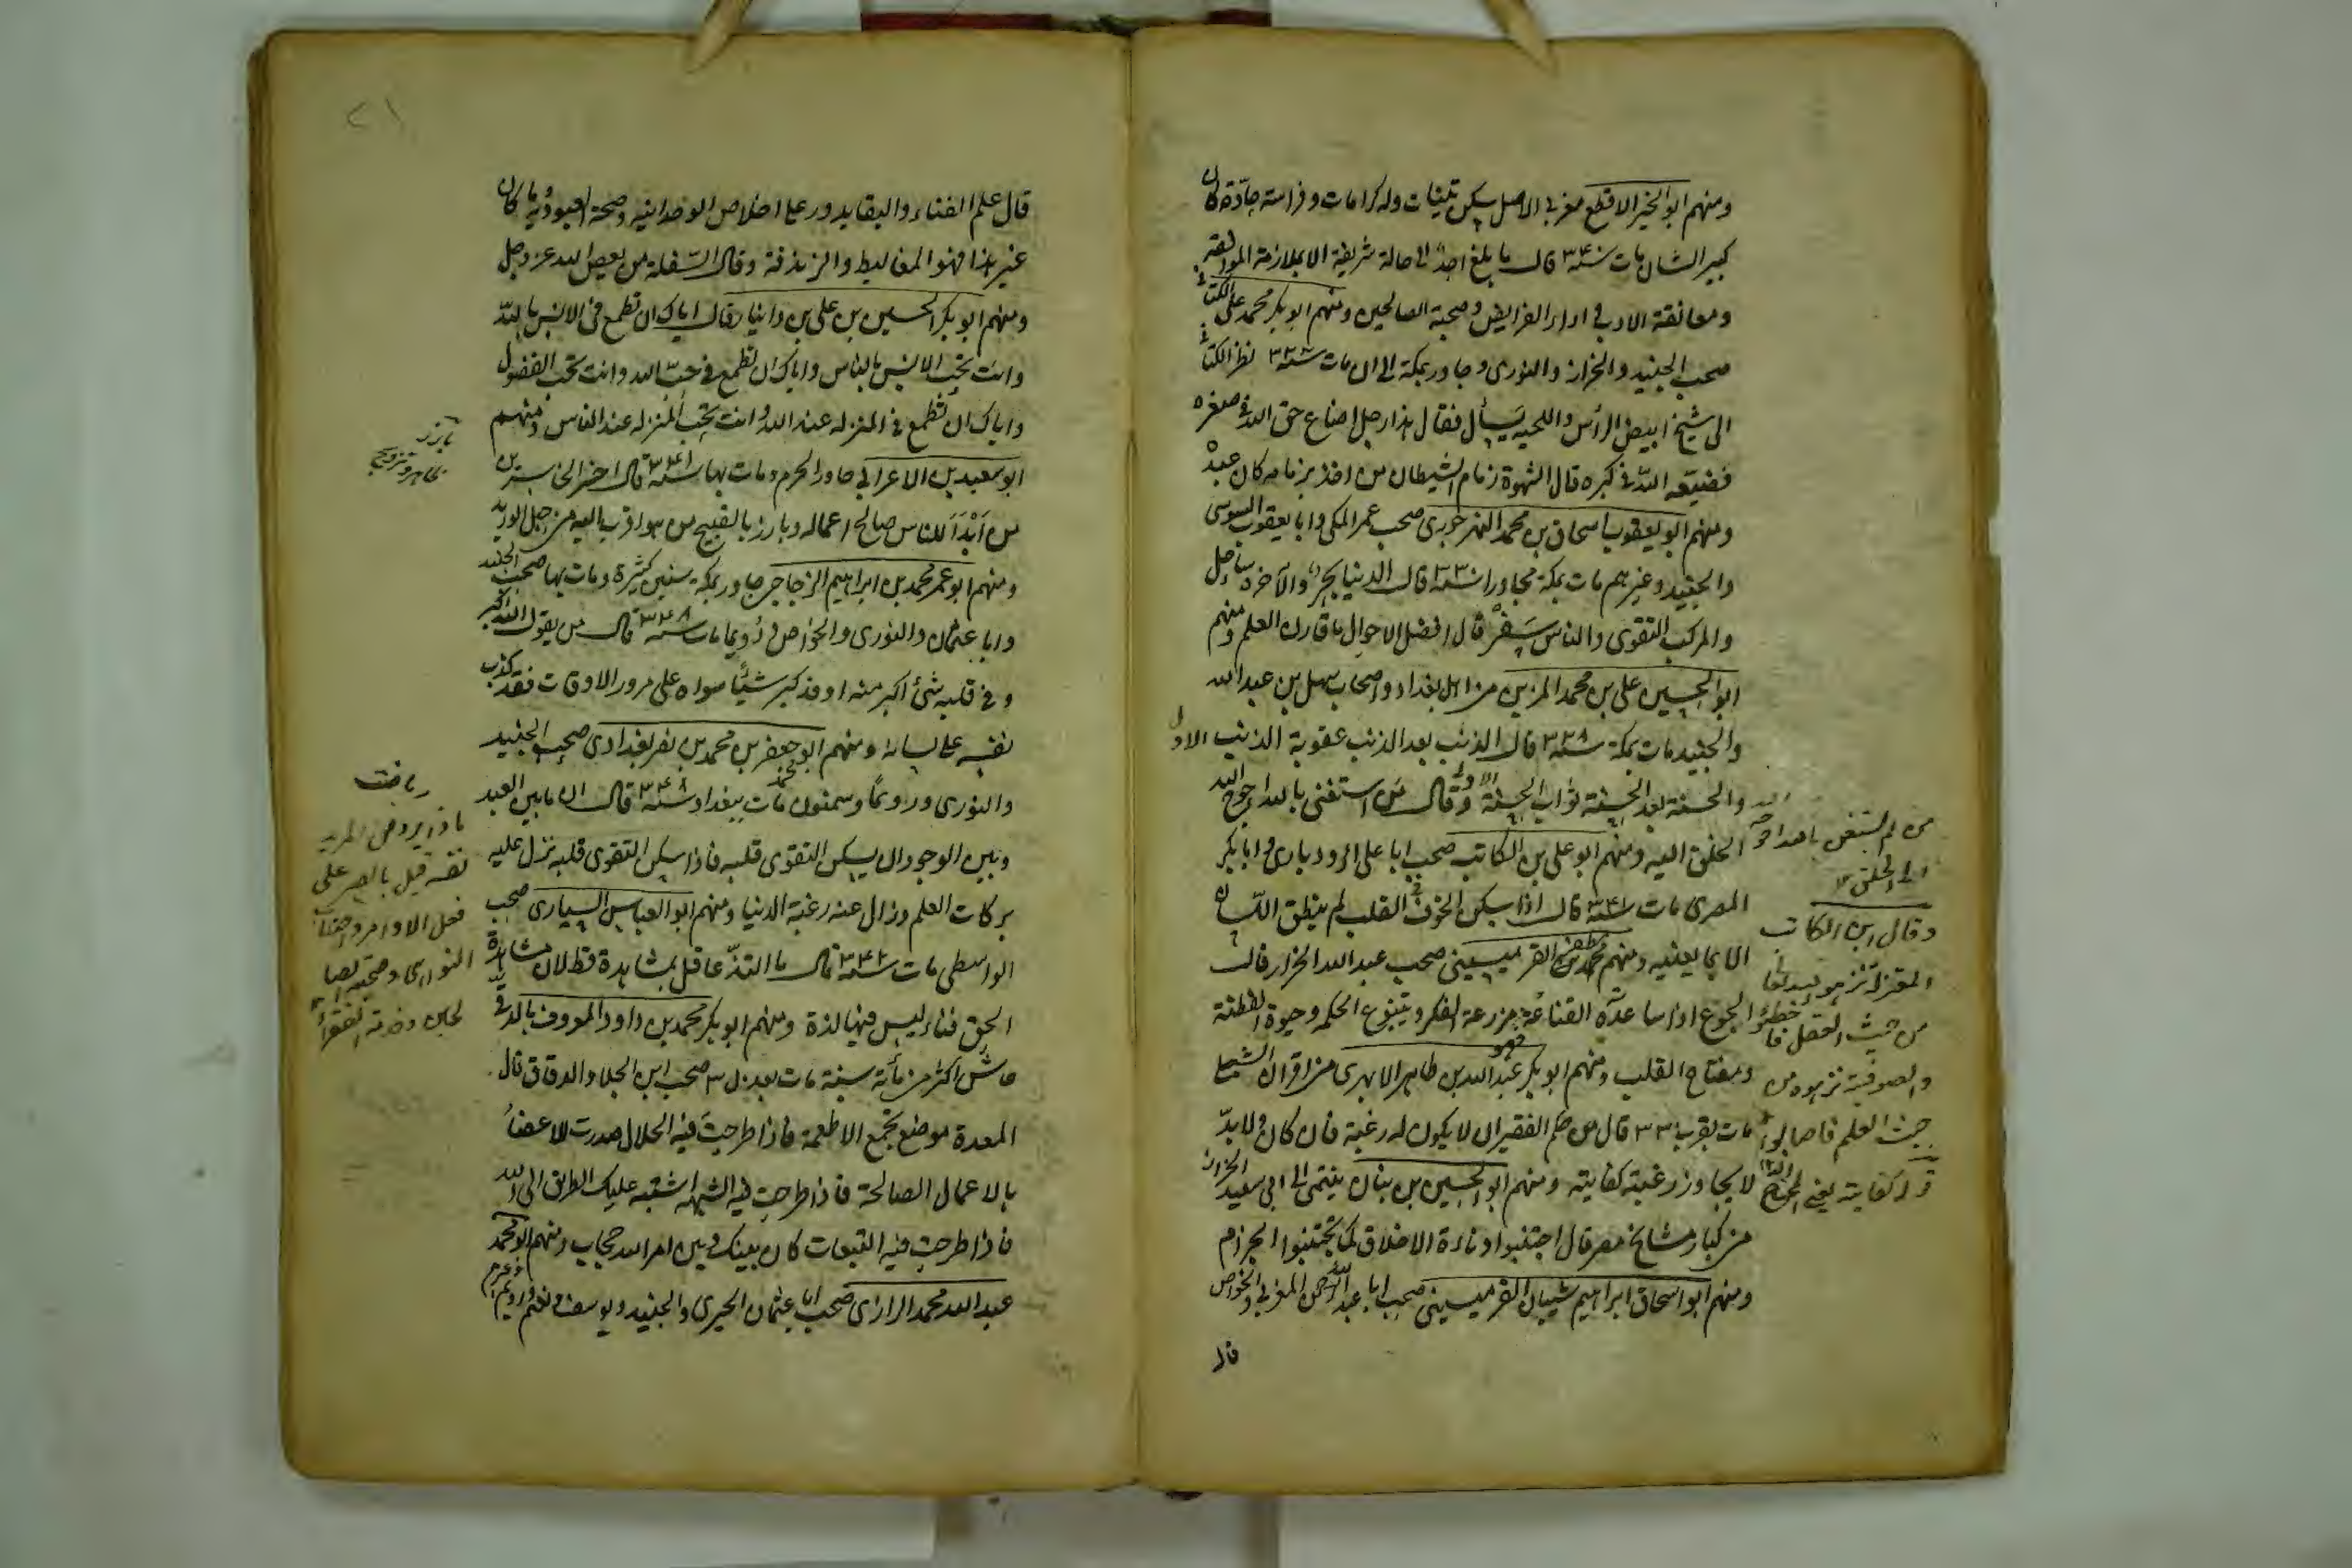 ومنهم ابو الخير الاقطع مغربي الاصل سكن تينات وله كرامات وفراسة حادة كان
كبير الشان مات سنة ٣۴ قال ما بلغ احد الى حالة شريفة الا بملازمة الموافقة
ومعانقة الادب في اداء الفرايض وصحبة الصالحين ومنهم ابو بكر محمد علي الكتاني
صحب الجنيد والخراز والنوري وجاور بمكة الى ان مات سنة نظر الكتاني
الى شيخ ابيض الرأس واللحيه يسأل فقال هذا رجل اضاع حق الله في صغره
فضيّعه الله في كبره قال الشهوة زمام الشيطان من اخذ بزمامه كان عبده
ومنهم ابو يعقوب اسحاق بن محمد النهرجوري صحب عمر المكي وابا يعقوب السوسي
والجنيد وغيرهم مات بمكة مجاورا سنة ٣٣٠ قال الدنيا بحر والآخره ساحل
والمركب التقوى والناس سَفْر قال افضل الاحوال ما قارن العلم ومنهم
ابو الحسين علي بن محمد المزين من اهل بغداد واصحاب سهل بن عبد الله
والجنيد مات بمكة سنة ٣٣٨ قال الذنب بعد الذنب عقوبة الذنب الاول
والحسنة بعد الحسنة ثواب الحسنة الاولى وقال من استغنى بالله احوج الله
الخلق اليه ومنهم ابو علي بن الكاتب صحب ابا علي الرودباري وابا بكر
المصري مات سنة قال اذا سكن الخوف في القلب لم ينطق اللسان
الا بما يعنيه ومنهم مظفر القرميسيني صحب عبد الله الخراز قال
الجوع اذا ساعدته القناعة مزرعة الفكر وينبوع الحكمه وحيوة الفطنة
ومفتاح القلب ومنهم ابو بكر عبد الله بن طاهر الابهري من اقران الشبلي
مات بقرب ٣٣ قال من حكم الفقير ان لا يكون له رغبة فان كان ولا بدّ
لا يجاوز رغبته كفايته ومنهم ابو الحسين بن بنان ينتمى الى ابي سعيد الخراز
من كبار مشايخ مصر قال اجتنبوا دناءة الاخلاق كما تجتنبوا الحرام
ومنهم ابو اسحاق ابراهيم شيبان القرميسيني صحب ابا عبد الله المغربي والخواص
قال
من لم يستغن بالله احوجه الله
الى الخلق
وقال ابن الكاتب
المعتزلة نزهوا الله تعالى
من حيث العقل فاخطئوا
والصوفية نزهوه من
حيث العلم فاصابوا
قال علم الفناء والبقاء يدور على اخلاص الوحدانيه وصحة العبوديه ما كان
غير هذا فهو المغاليط والزندقة وقال السفلة من يعصي الله عز وجل
ومنهم ابو بكر الحسين بن علي بن دانيار قال اياك ان تطمع في الانس بالله
وانت تحب الانس بالناس واياك ان تطمع في حبّ الله وانت تحب الفضول
واياك ان تطمع في المنزله عند الله وانت تحب المنزله عند الناس ومنهم
ابو سعيد بن الاعرابي جاور الحرم ومات بها سنة ٣۴١ قال اخسر الخاسرين
من اَبْدَأَ للناس صالح اعماله وبارز بالقبيح من هو اقرب اليه من حبل الوريد
ومنهم ابو عمر محمد بن ابراهيم الزجاجي جاور بمكة سنين كثيرة ومات بها صحب الجنيد
وابا عثمان والنوري والخواص ورويما مات سنة ٣۴٨ قال من يقول الله اكبر
وفي قلبه شئ اكبر منه او قد كبر شيئا سواه على مرور الاوقات فقد كذب
نفسه على لسانه ومنهم ابو جعفر بن محمد بن نصر بغدادى صحب الجنيد
والنوري ورويما وسمنون مات ببغداد سنة ٣۴٨ قال ان ما بين العبد
وبين الوجود ان يسكن التقوى قلبه فاذا سكن التقوى قلبه نزل عليه
بركات العلم وزال عنه رغبة الدنيا ومنهم ابو العباس السيارى صحب
الواسطى مات سنة ٣۴٢ قال ما التذّ عاقل بمشاهدة قط لان مشاهدة
الحق فناء ليس فيها لذة ومنهم ابو بكر محمد بن داود المعروف بالدقي
عاش اكثر من مأية سنة مات بعد صحب ابن الجلا والدقاق قال
المعدة موضع تجمع الاطعمة فاذا طرحت فيه الحلال صدرت الاعضاء
بالاعمال الصالحة فاذا طرحت فيه الشبهه اشتبه عليك الطريق الى الله
فاذا طرحت فيه التبعات كان بينك وبين امر الله حجاب ومنهم ابو محمد
عبد الله محمد الرازى صحب ابا عثمان الحيرى والجنيد ويوسف ورويم وغيرهم
رياضت
بماذا يروض المريد
نفسه قيل بالصبر على
فعل الاوامر واجتناب
النواهى وصحبة الصا
لحين وخدمة الفقراء